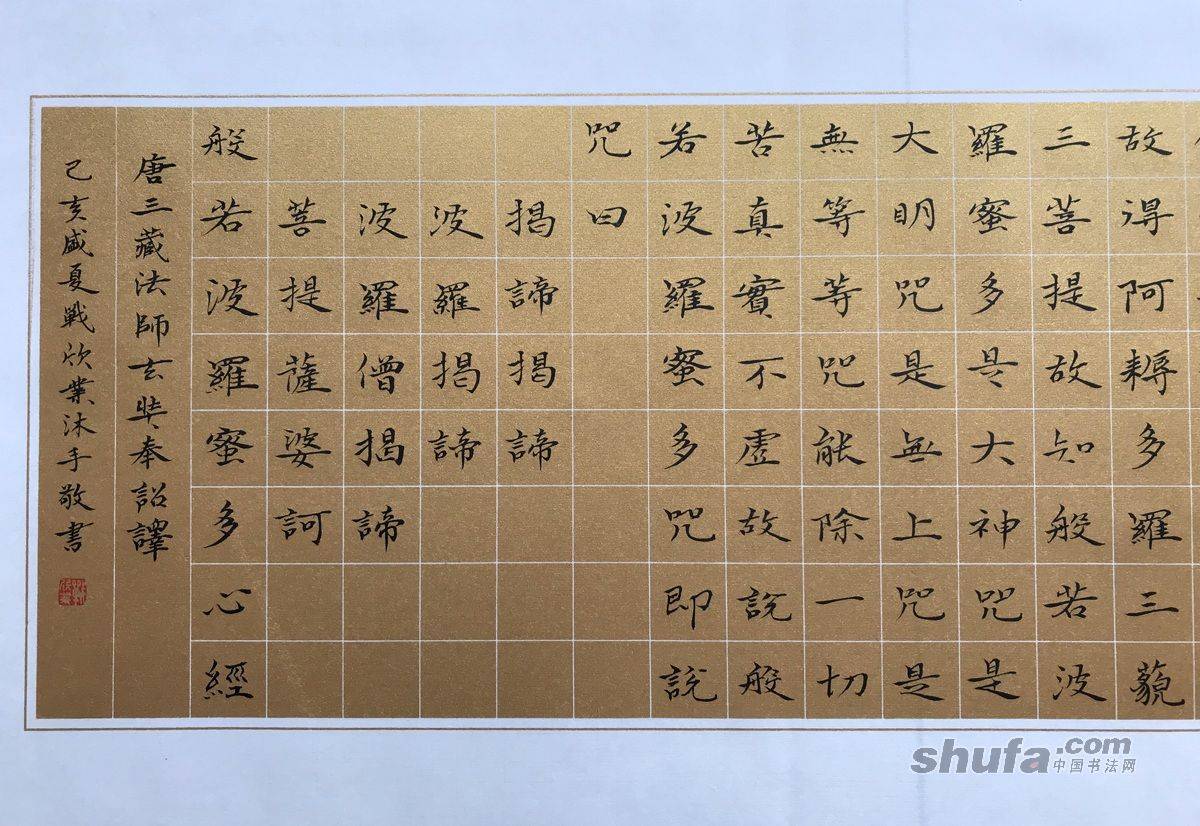 故得阿耨多羅三藐
三菩提故知般若波
羅蜜多是大神咒是
大明咒是無上咒是
無等等咒能除一切
苦真實不虛故說般
若波羅蜜多咒即說
咒曰
揭諦揭諦
波羅揭諦
波羅僧揭諦
菩提薩婆訶
般若波羅蜜多心經
唐三藏法師玄奘奉詔譯
己亥盛夏戰欣業沐手敬書
shufa.com
中国书法网